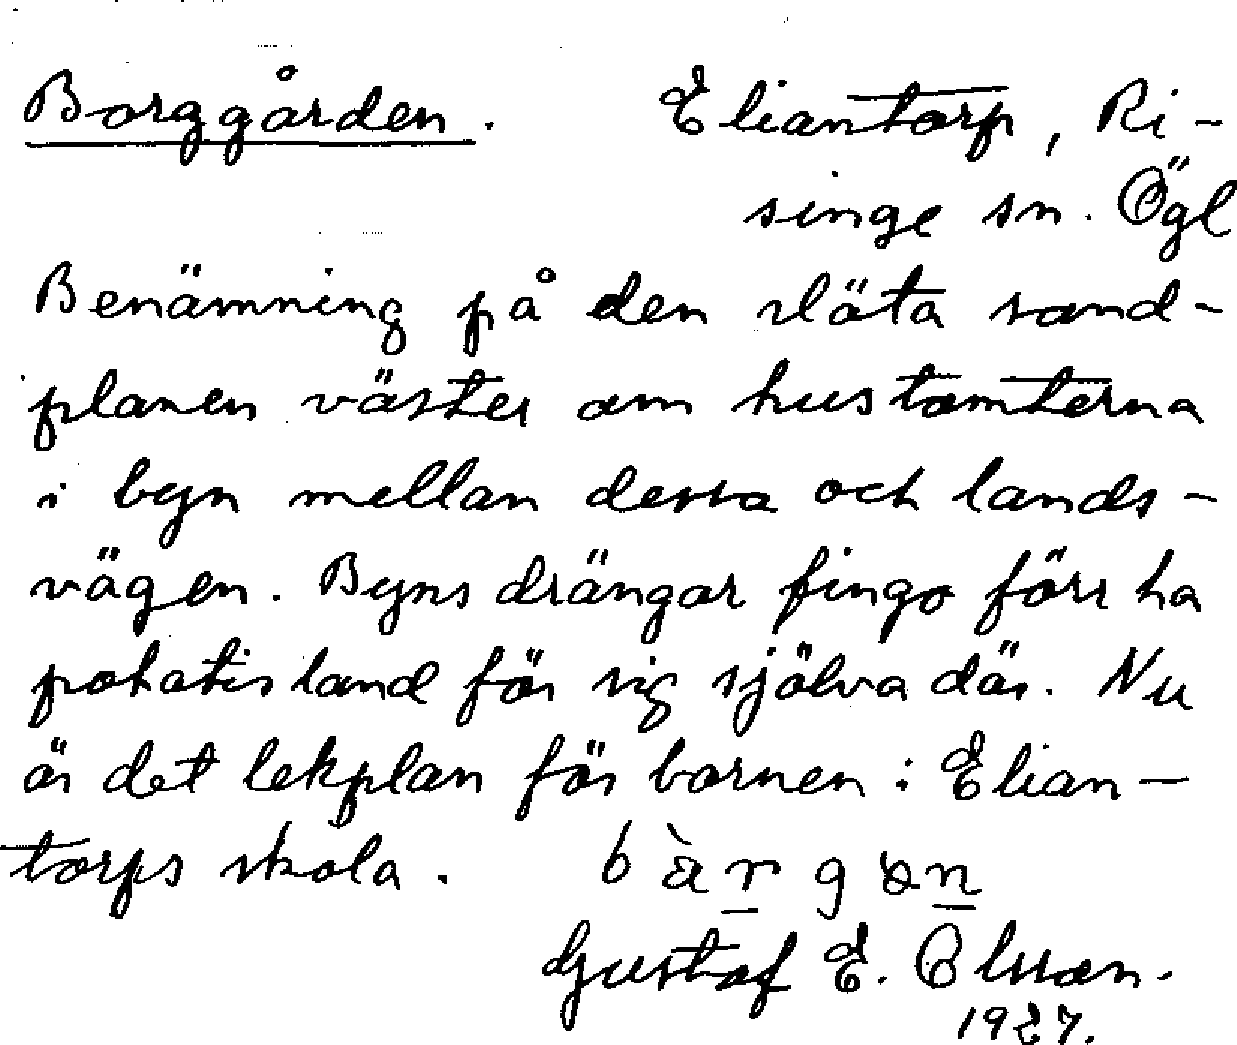 Borggården. Eliantorp, Ri-
singe sn. Ögl
Benämning på den släta sand-
planen väster om hustomterna
i byn mellan dessa och lands-
vägen. Byns drängar fingo förr ha
potatisland för sig själva där. Nu
är det lekplan för barnen i Elian-
torps skola.
Gustaf E. Olsson.
1927.